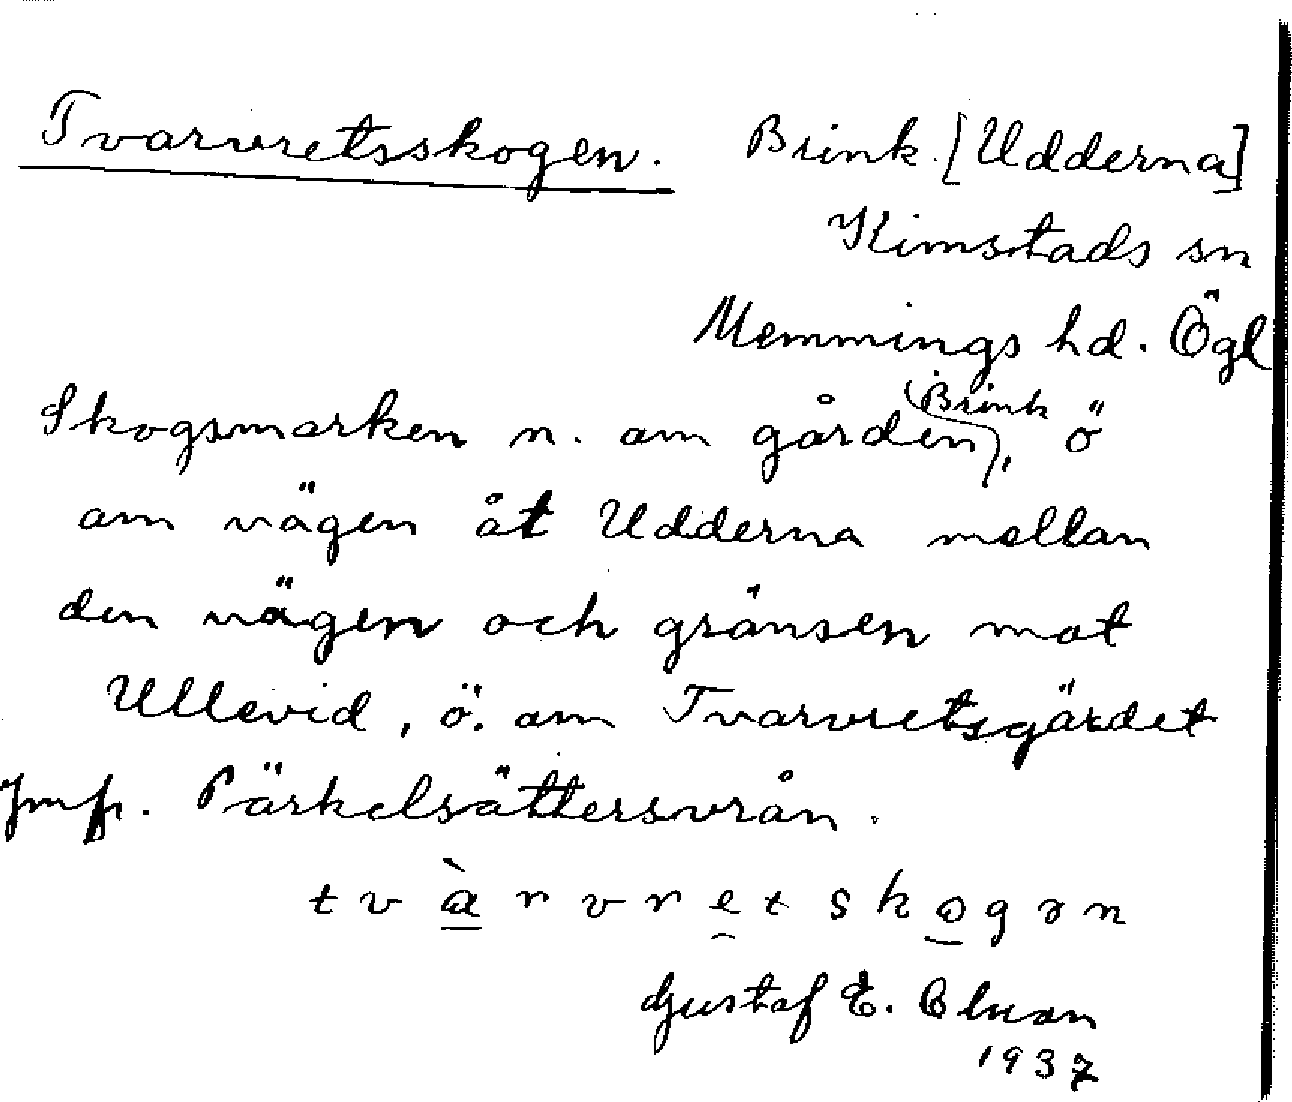 Tvarvretsskogen. Brink. [Udderna]
Kimstads sn
Memmings hd. Ögl
Skogsmarken n. om gården Brink, ö
om vägen åt Udderna mellan
den vägen och gränsen mot
Ullevid, ö. om Tvarvretsgärdet
Jmfr. Pärkelsättersvrån.
t v à r v r e t s k o g ə n
Gustaf E.
1937